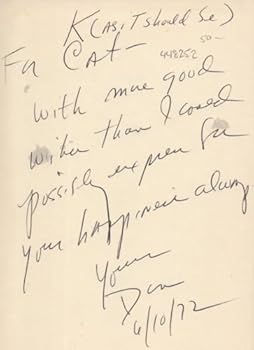 K (As it should be)
For Cat –
448252 50–
with more good
wishes than I could
possibly express for
your happiness always
Yours
Dan
6/10/72